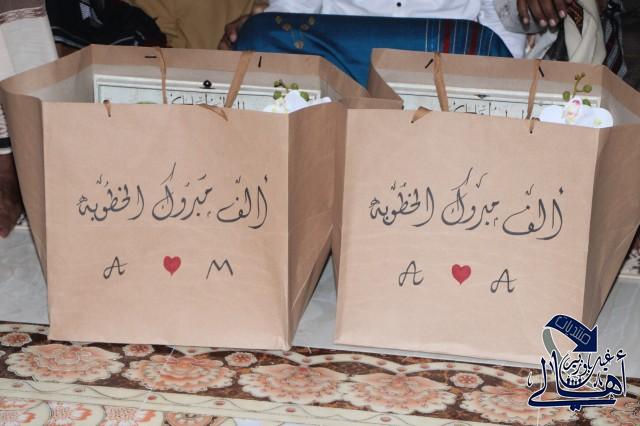 ألف مبروك الخطوبه
A ❤ M
ألف مبروك الخطوبه
A ❤ A
منتديات
أهالي